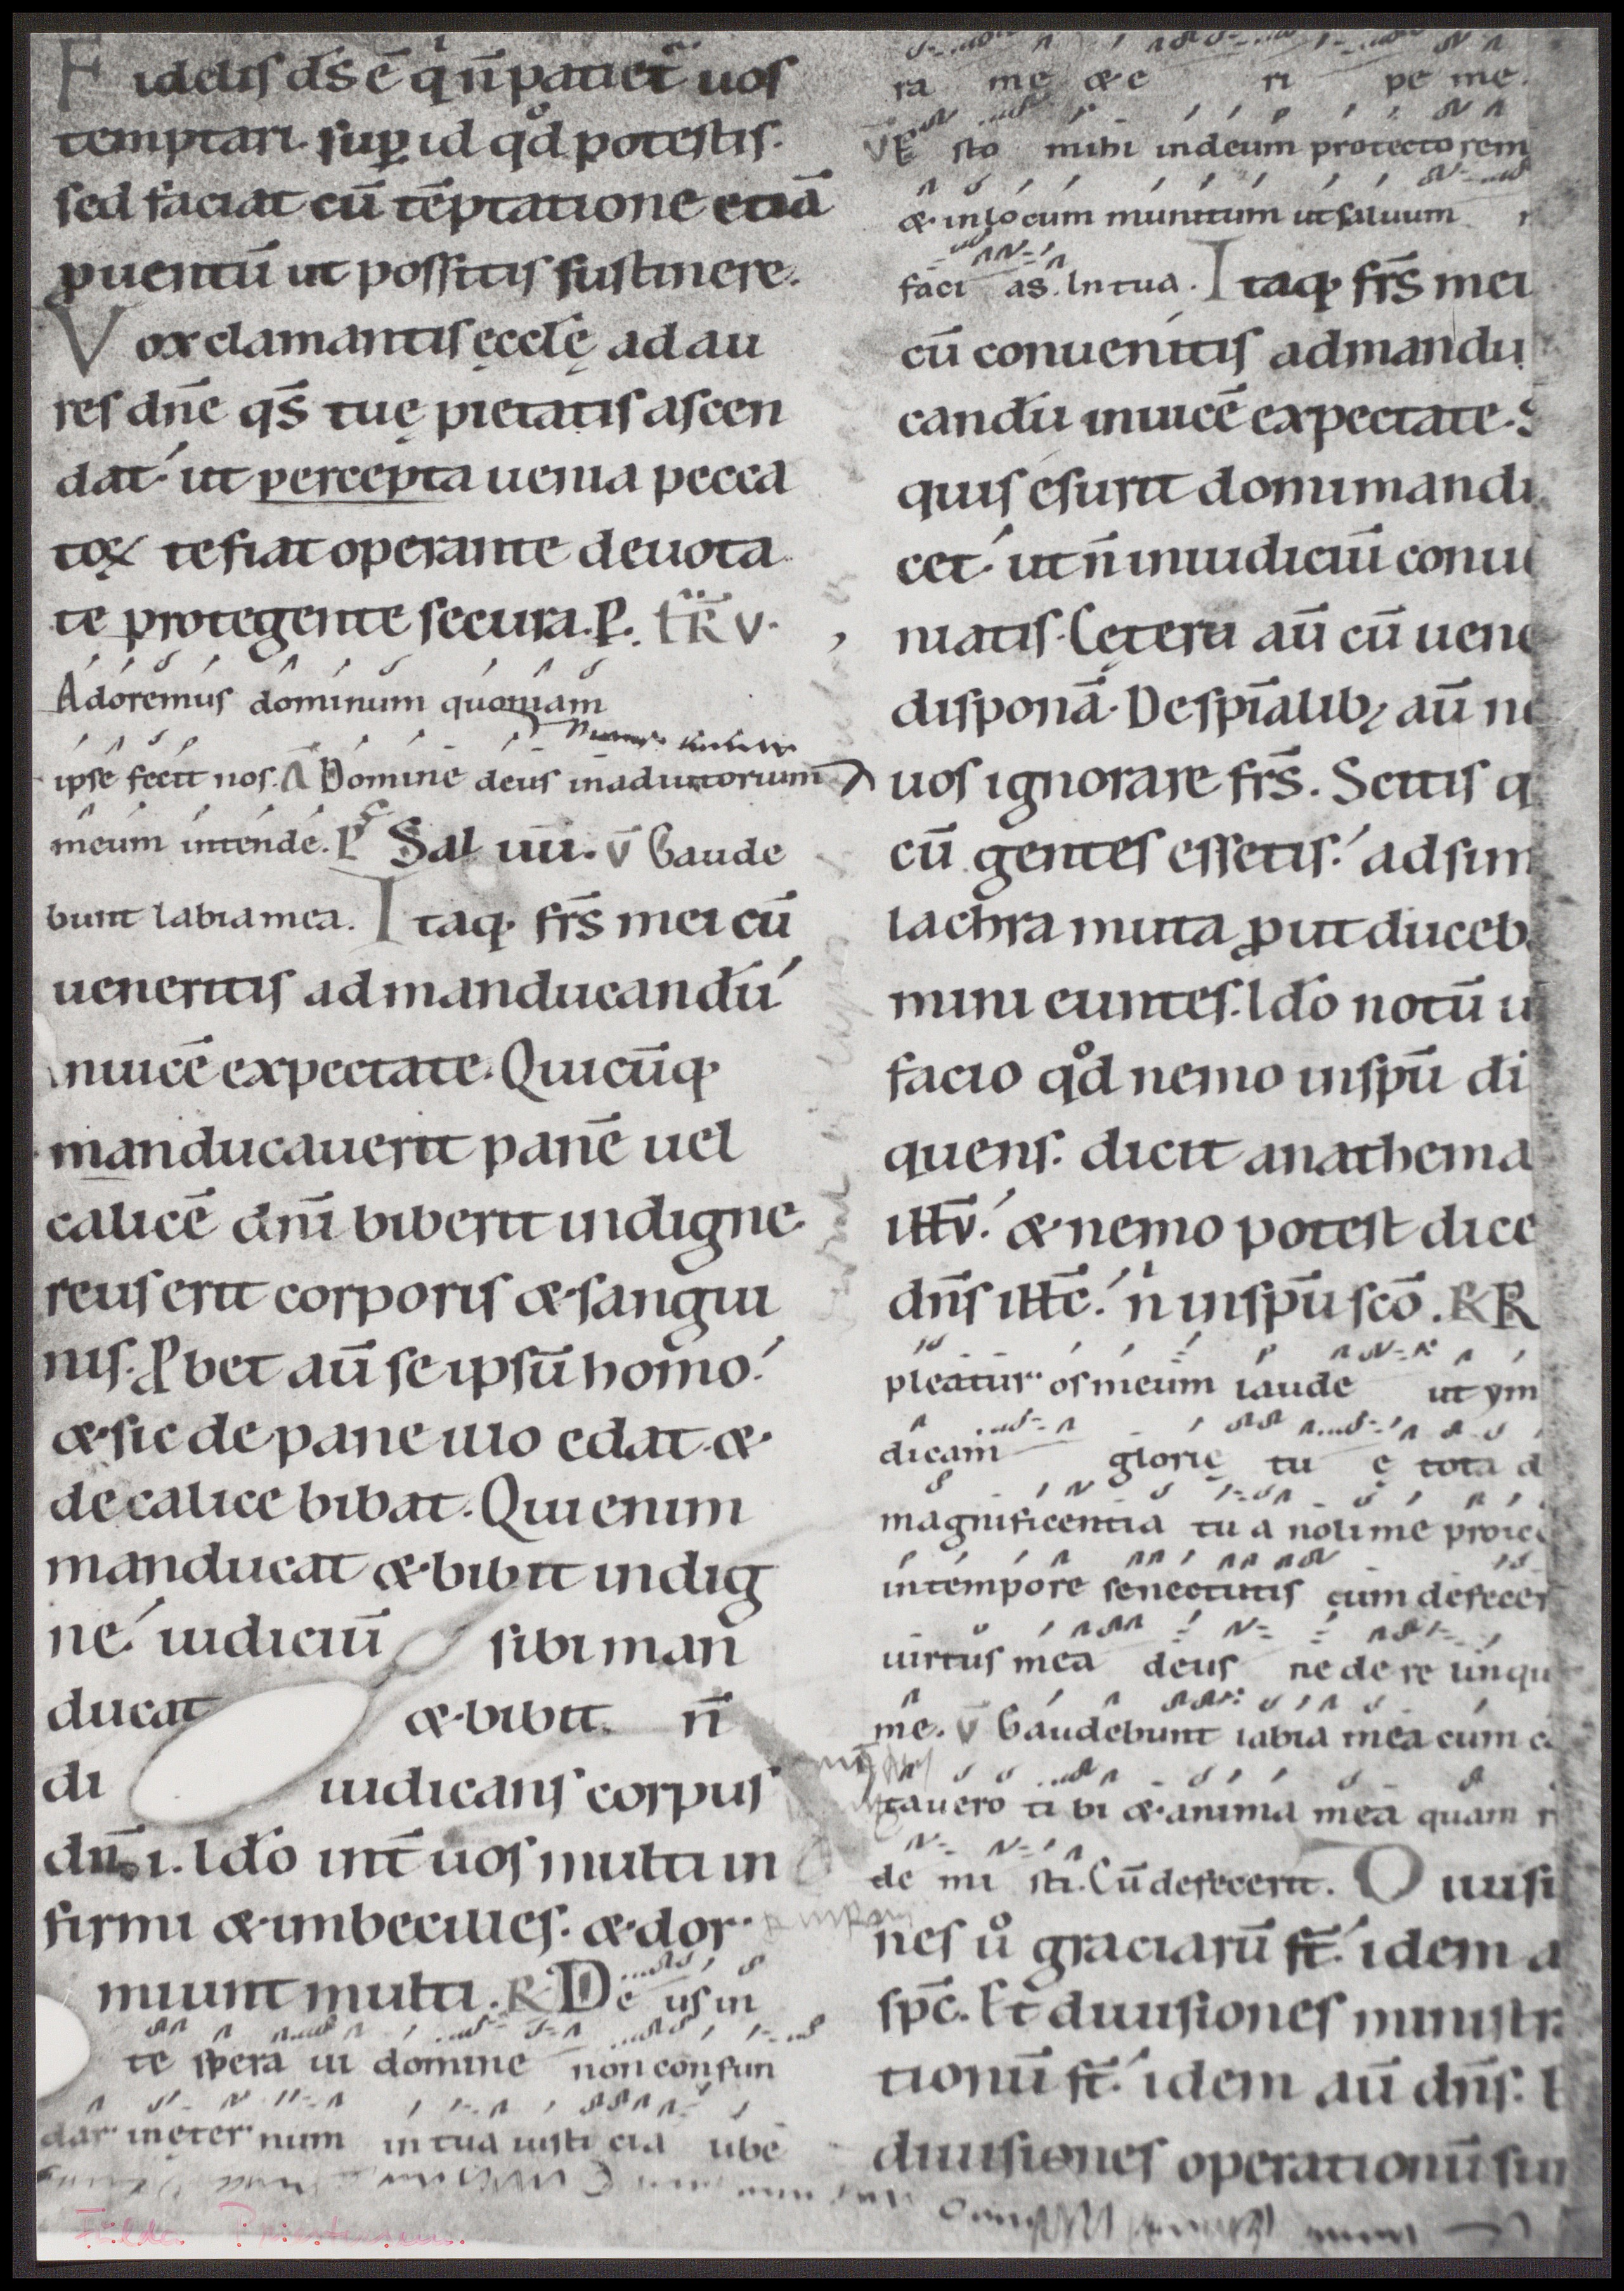 Fidelis ds̄ ē q̇ n̄ patiet̄ uos
temptari sup̱ id qd̊ potestis.
sed faciat cū tēptatione etiā
ꝓuentū ut possitis sustinere.
Vox clamantis ęcclę ad au
res dn̄e qs̄ tuę pietatis ascen
dat ut percepta uenia pecca
toꝝ te fiat operante deuota
te protegente secura. P.
Adoremus dominum quoniam
ipse fecit nos. A Domine deus inadiutorium
meum intende. Ps Sal uii. v̄ Gaude
bunt labia mea. Itaq. frs̄ mei cū
ueneritis admanducandū
inuicē expectate. Quicūq.
manducauerit panē uel
calicē dn̄i biberit indigne
reus erit corporis & sangui
nis. Ꝓbet aū se ipsū homo
& sic de pane illo edat &
de calice bibat. Qui enim
manducat & bibit indig
ne iudiciū sibi man
ducat & bibit n̄
di iudicans corpus
dn̄i. Ido int̄ uos multi in
firmi & imbecilles. & dor
miunt multi. R Deus in
te spera ui domine non confun
dar ineternum intua iusti cia libe
ra me & e ri pe me.
VEsto mihi indeum protectorem
& inlocum munitum ut saluum
faci as. In tua. Itaq. frs̄ mei
cū conuenitis admandu
candū inuicē expectate. S
quis esurit domi mandu
cet ut n̄ iniudiciū conue
niatis. Cętera aū cū uene
disponā. De spīalib; aū no
uos ignorare frs̄. Scitis q
cū gentes essetis ad sim
lachra muta prout duceb
mini euntes. Ido notū u
facio qd̊ nemo inspū di
quens. dicit anathema
ih̄u. & nemo potest dice
dn̄s ih̄c. n̊ inspū scō. R R
pleatur os meum laude ut ym
dicam glorię tu ę tota d
magnificentia tu a noli me proice
intempore senectutis cum defecer
uirtus mea deus ne de re linqu
me. v̄ Gaudebunt labia mea cum c
tauero ti bi & anima mea quam r
de mi sti. Cū defecerit. Diuisi
nes ů graciarū st̄ idem a
spc̄. Et diuisiones ministra
tionū st̄ idem aū dn̄s. E
diuisiones operationū sun